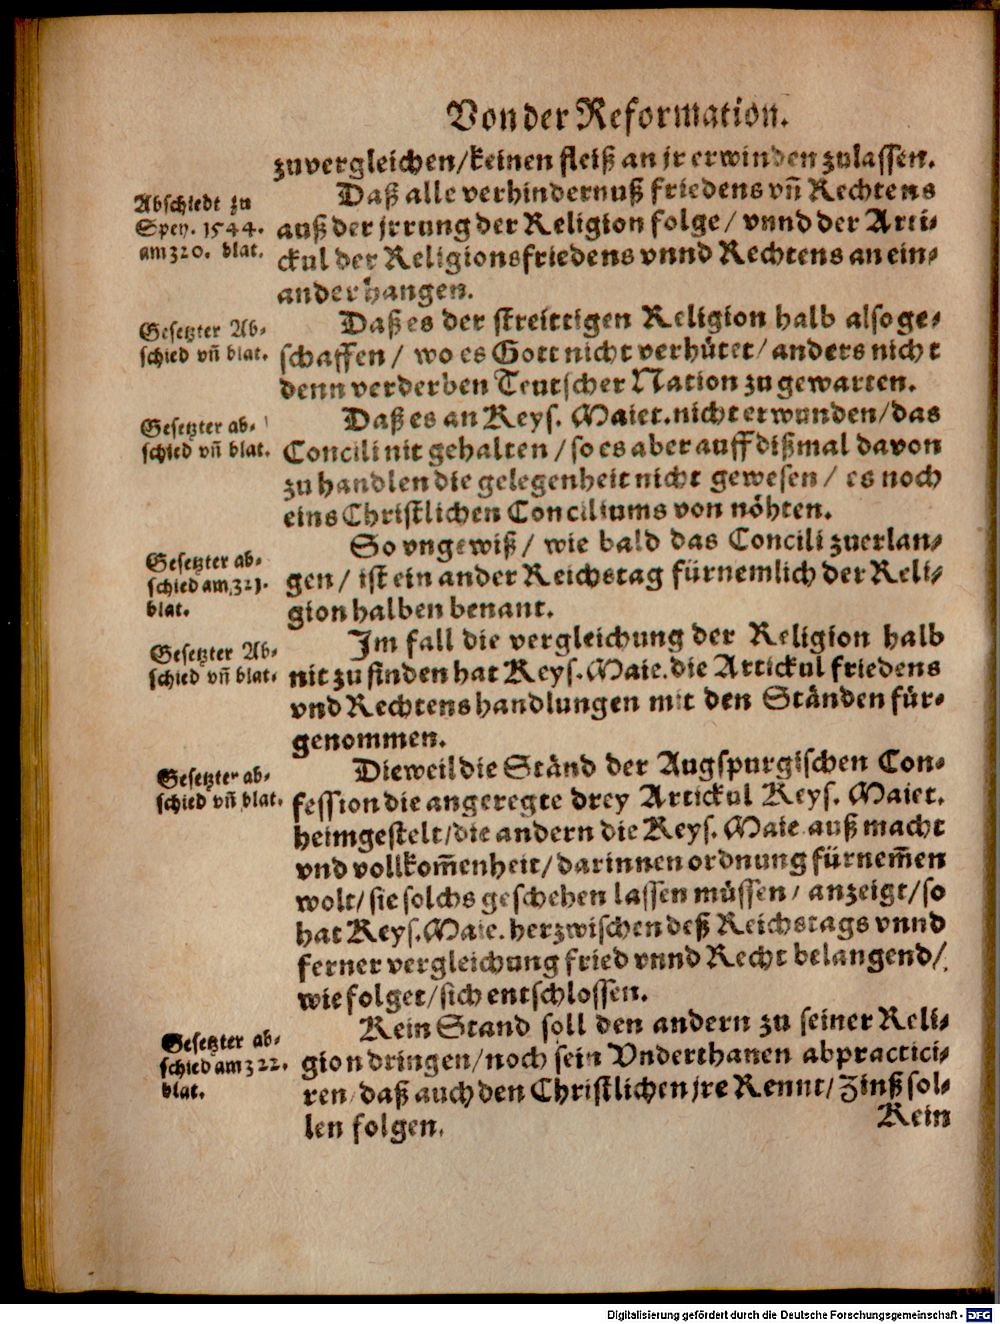 Von der Reformation.
zuvergleichen/keinen fleiß an jr erwinden zulassen.
Abschiedt zu
Spey. 1544.
am 320. blat.
Daß alle verhindernuß friedens vñ Rechtens
auß der jrrung der Religion folge/ vnnd der Arti-
ckul der Religionsfriedens vnnd Rechtens an ein-
ander hangen.
Gesetzter Ab-
schied vñ blat.
Daß es der streittigen Religion halb also ge-
schaffen/ wo es Gott nicht verhütet/ anders nicht
denn verderben Teutscher Nation zu gewarten.
Gesetzter ab-
schied vñ blat.
Daß es an Keys. Maiet. nicht erwunden/das
Concili nit gehalten/so es aber auff dißmal davon
zu handlen die gelegenheit nicht gewesen/ es noch
eins Christlichen Conciliums von nöhten.
Gesetzter ab-
schied am 321.
blat.
So vngewiß/ wie bald das Concili zuerlan-
gen/ ist ein ander Reichstag fürnemlich der Reli-
gion halben benant.
Gesetzter Ab-
schied vñ blat.
Im fall die vergleichung der Religion halb
nit zu finden hat Keys. Maie. die Artickul friedens
vnd Rechtens handlungen mit den Ständen für-
genommen.
Gesetzter ab-
schied vñ blat.
Dieweil die Ständ der Augspurgischen Con-
fession die angeregte drey Artickul Keys. Maiet.
heimgestelt/die andern die Keys. Maie auß macht
vnd vollkom̃enheit/darinnen ordnung fürnem̃en
wolt/sie solchs geschehen lassen müssen/ anzeigt/so
hat Keys. Maie. herzwischen deß Reichstags vnnd
ferner vergleichung fried vnnd Recht belangend/
wie folget/sich entschlossen.
Gesetzter ab-
schied am 322.
blat.
Kein Stand soll den andern zu seiner Reli-
gion dringen/noch sein Vnderthanen abpractici-
ren/daß auch den Christlichen jre Rennt/Zinß sol-
len folgen.
Kein
Digitalisierung gefördert durch die Deutsche Forschungsgemeinschaft - DFG